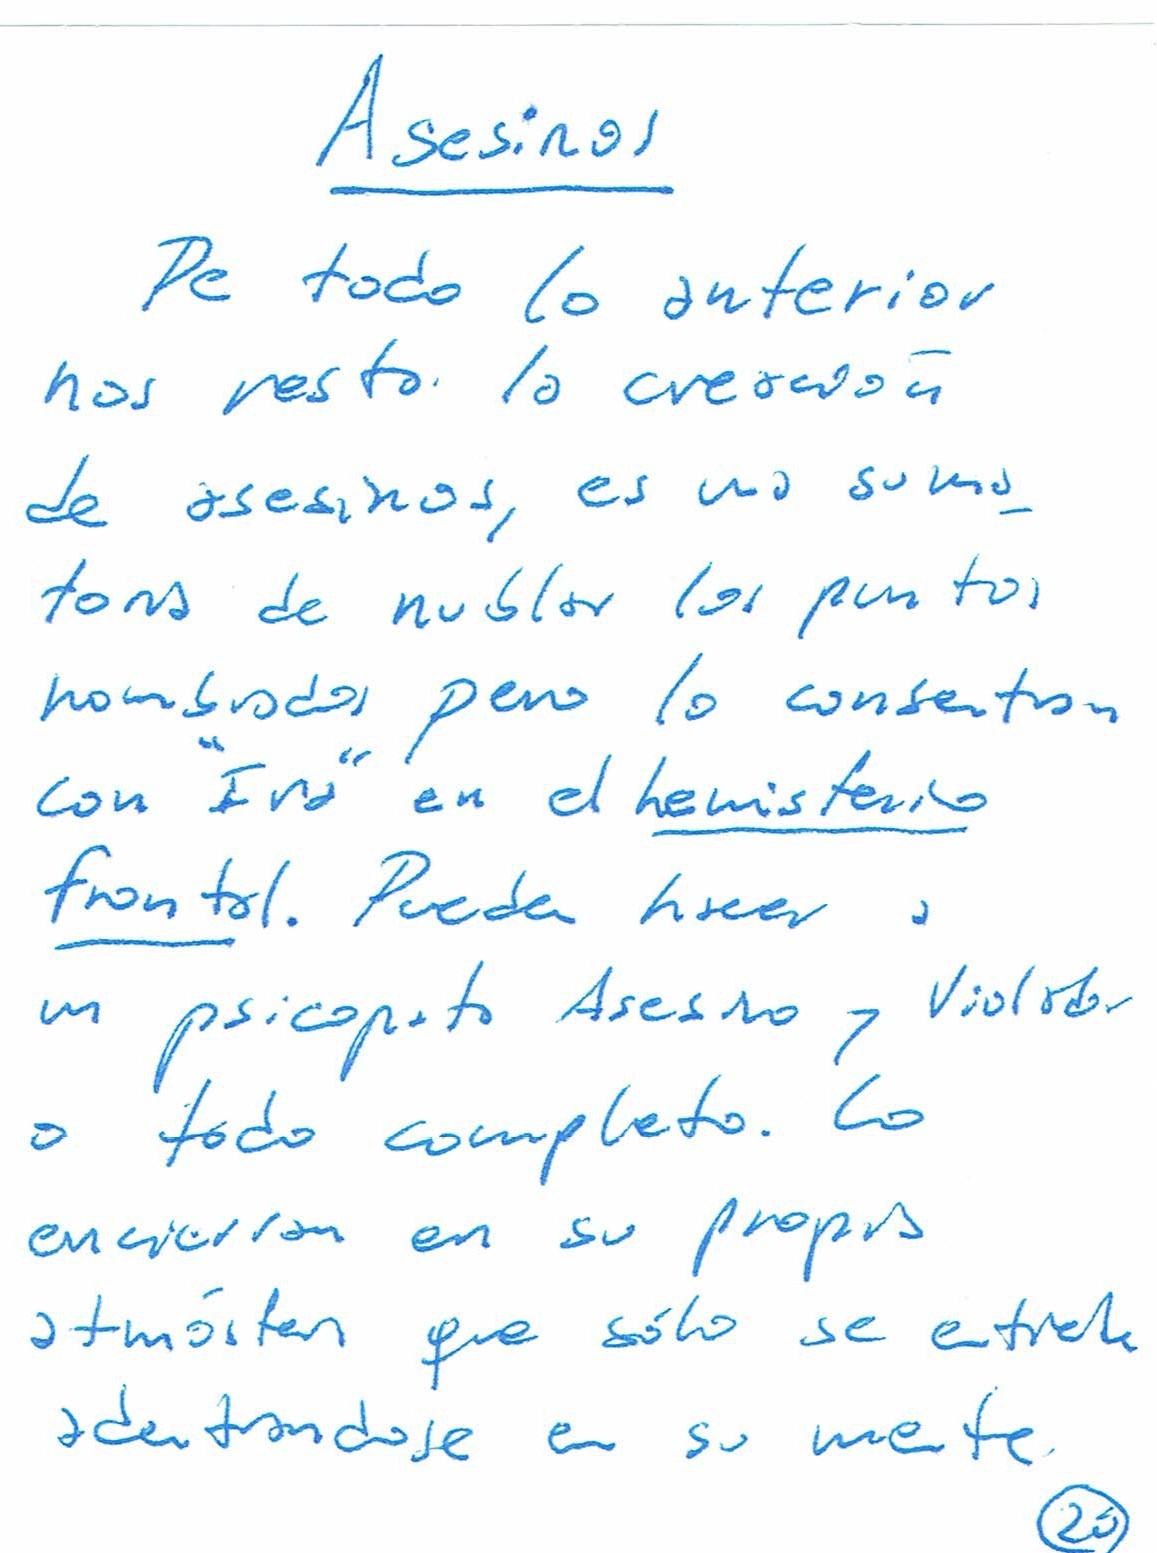 Asesinos
De todo lo anterior
nos resta la creación
de asesinos, es una suma_
toria de nublar los puntos
nombrados pero lo consentran
con "Ira" en el hemisferio
frontal. Pueden hacer a
un psicopata Asesino y Violador
o todo completo. Lo
encierran en su propia
atmósfera que sólo se
adentrandose en su mente.